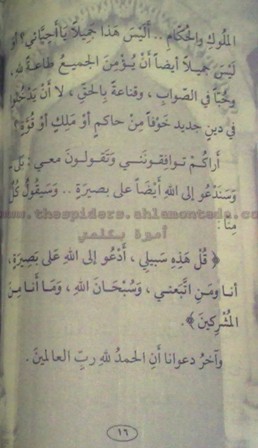 المُلوكِ والحُكّامِ .. أَلَيْسَ هَذَا جَمِيلاً يَا أَحِبَّائي؟ أَوَ
لَيْسَ جَمِيلاً أيضاً أَنْ يُؤْمِنَ الجَمِيعُ طَاعَةً للهِ،
وحُبّاً في الصَّوابِ، وقَناعَةً بِالحَقِّ، لا أَنْ يَدْخُلُوا
في دينٍ جديدٍ خَوْفاً مِنْ حاكِمٍ أَوْ مَلِكٍ أَوْ قُوَّةٍ؟
أَراكُمْ توافِقونَني وَتَقولونَ معي: بَلى ..
وَسَنَدْعُو إلى اللهِ أَيْضاً على بصيرَةٍ .. وَسَيَقولُ كُلٌّ
www.thespiders.ahlamontada.com
مِنّا:
أميرة بكلمتي
﴿ قُلْ هَذِهِ سَبِيلِي، أَدْعُو إلى اللهِ عَلَى بَصِيرَةٍ،
أنا ومَنِ اتَّبَعَني، وَسُبْحَانَ اللهِ، وَمَا أَنا مِنَ
المُشْرِكينَ ﴾.
وآخرُ دعوانا أَنِ الحمدُ للهِ ربِّ العالمينَ.
١٦